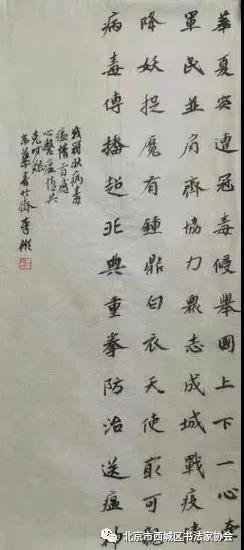 華夏突遭冠毒侵舉國上下一心
軍民並肩齊協力衆志成城戰疫情
降妖捉魔有鍾鼎白衣天使最可
病毒傳播超非典重拳防治送瘟神
冠狀病毒
心繫瘟疫共
克時
北京市西城区书法家协会